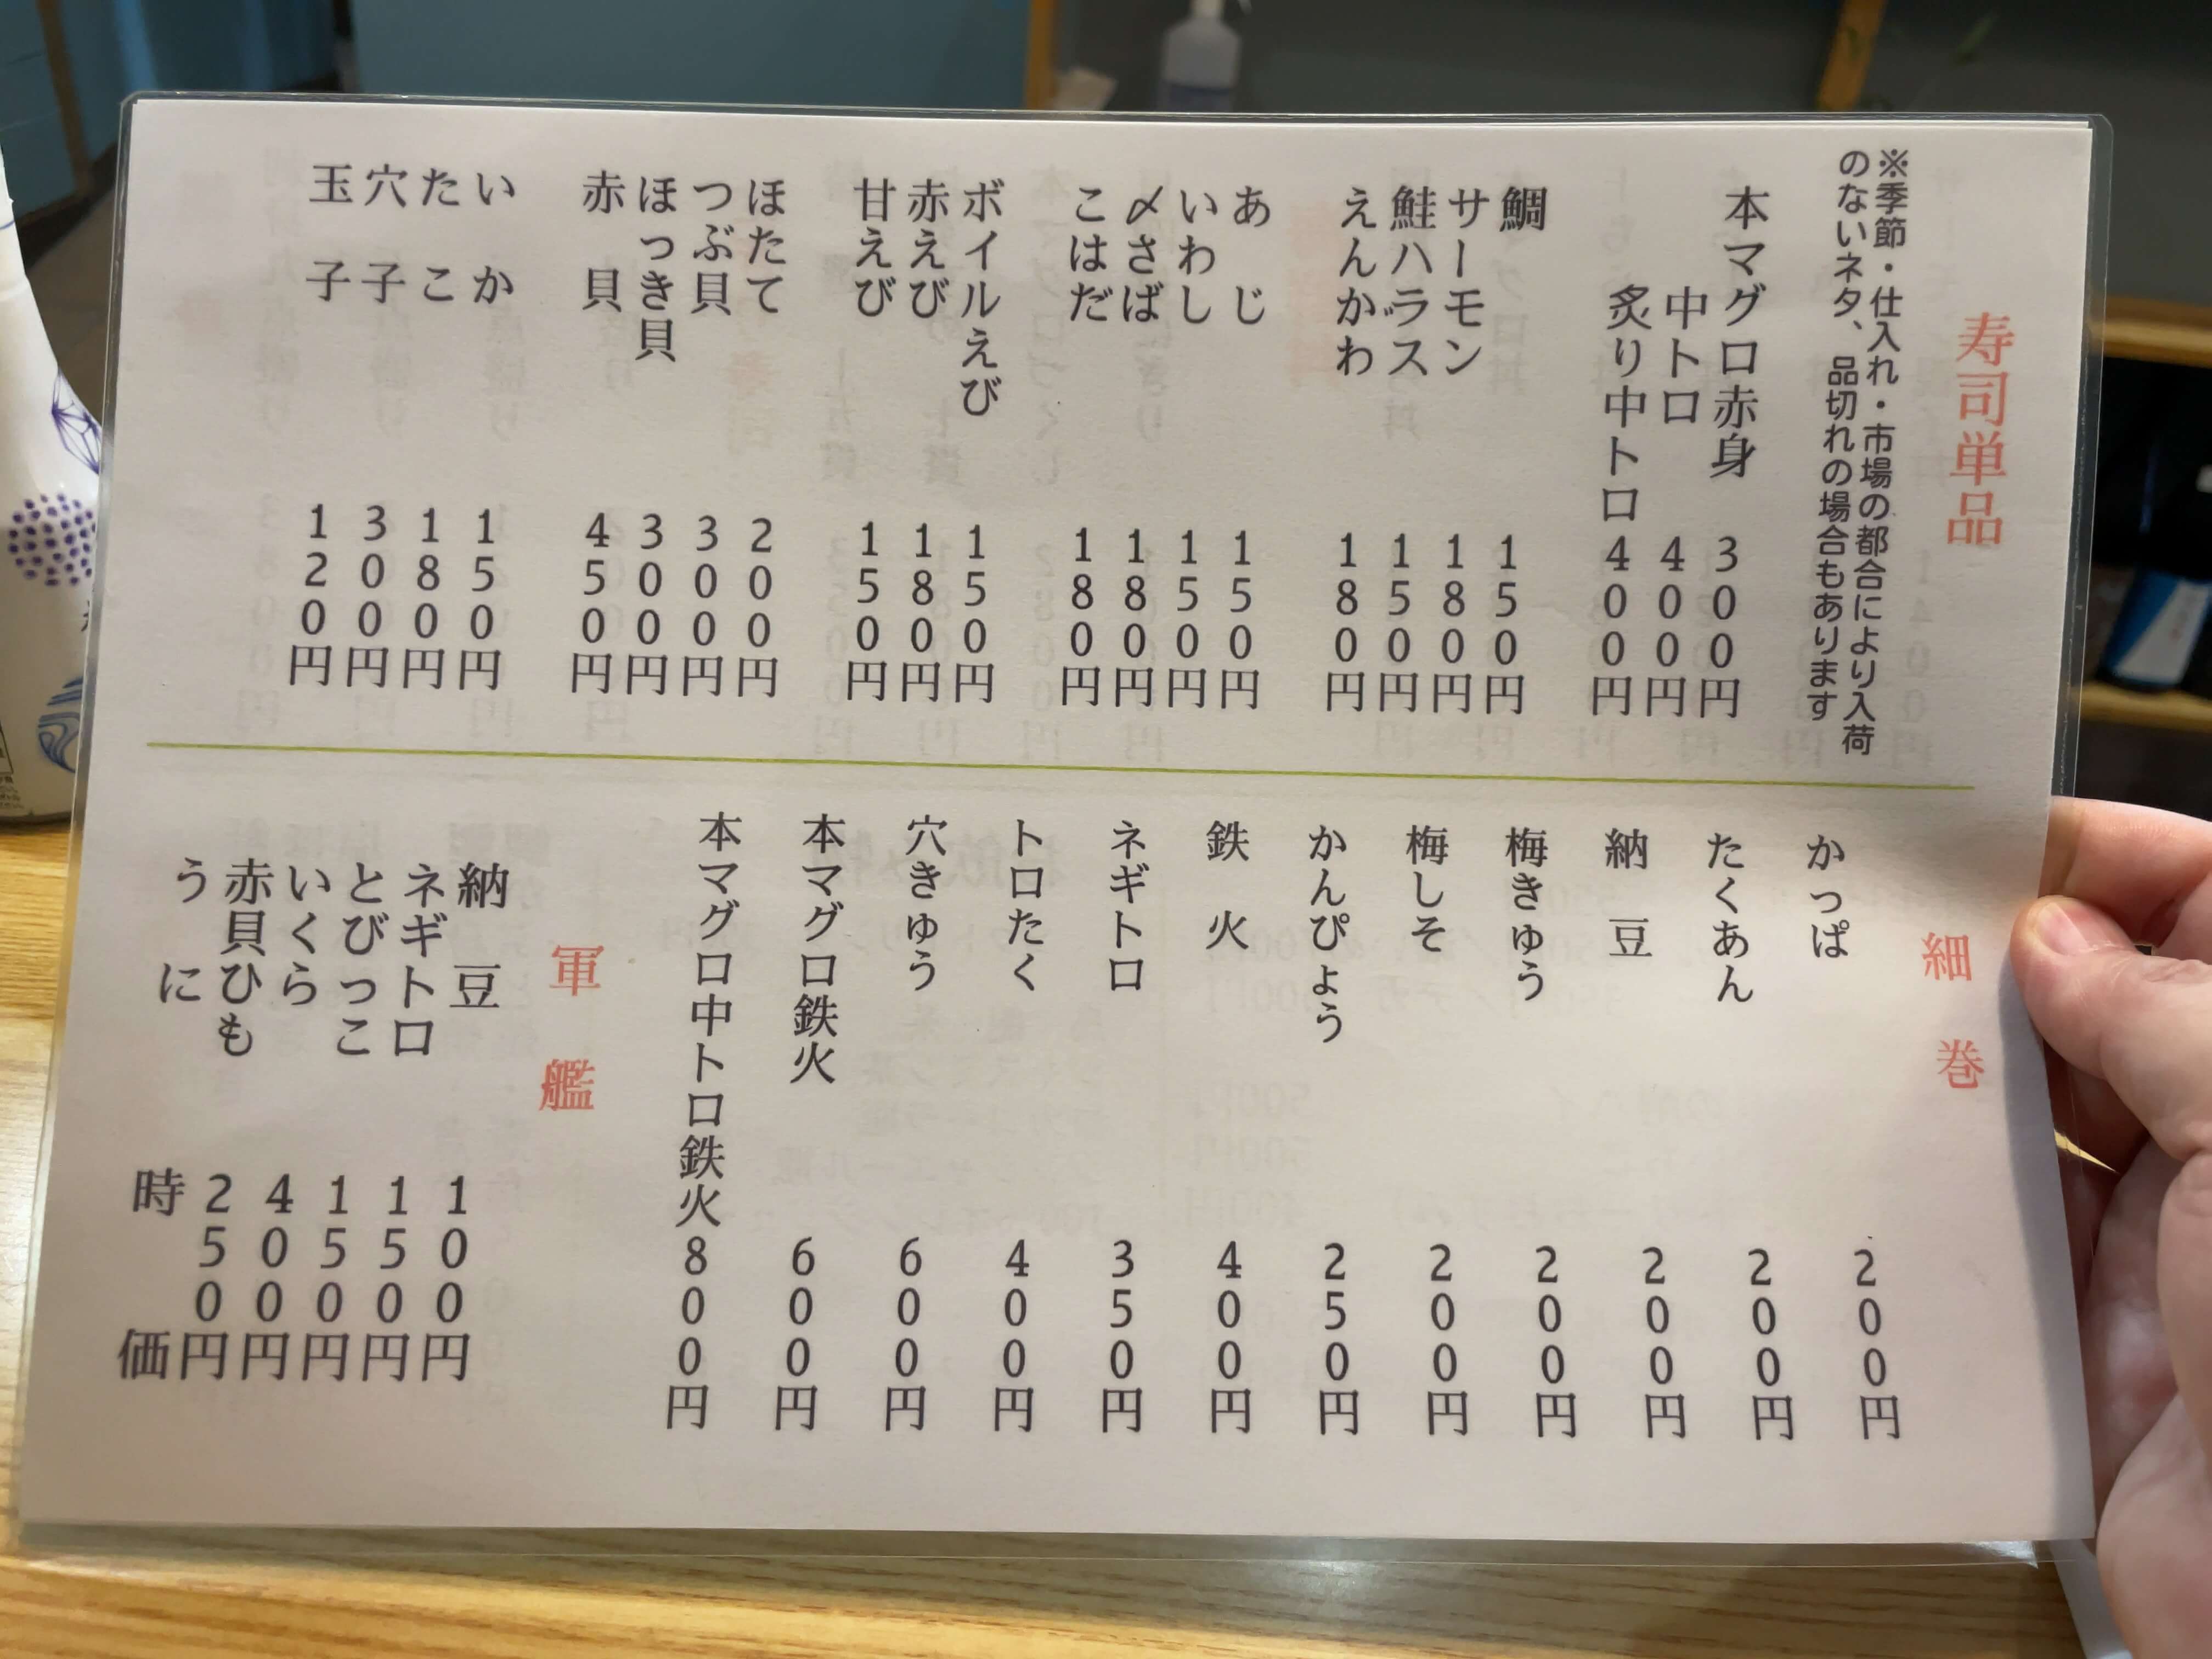 寿司単品
※季節・仕入れ・市場の都合により入荷
のないネタ、品切れの場合もあります
本マグロ赤身 300円
中トロ 400円
炙り中トロ 400円
鯛 150円
サーモン 180円
鮭ハラス 150円
えんがわ 180円
あじ 150円
いわし 150円
〆さば 180円
こはだ 180円
ボイルえび 150円
赤えび 180円
甘えび 150円
ほたて 200円
つぶ貝 300円
ほっき貝 300円
赤貝 450円
いか 150円
たこ 180円
穴子 300円
玉子 120円
細巻
かっぱ 200円
たくあん 200円
納豆 200円
梅きゅう 200円
梅しそ 200円
かんぴょう 250円
鉄火 400円
ネギトロ 350円
トロたく 400円
穴きゅう 600円
本マグロ鉄火 600円
本マグロ中トロ鉄火 800円
軍艦
納豆 100円
ネギトロ 150円
とびっこ 150円
いくら 400円
赤貝ひも 250円
うに 時価